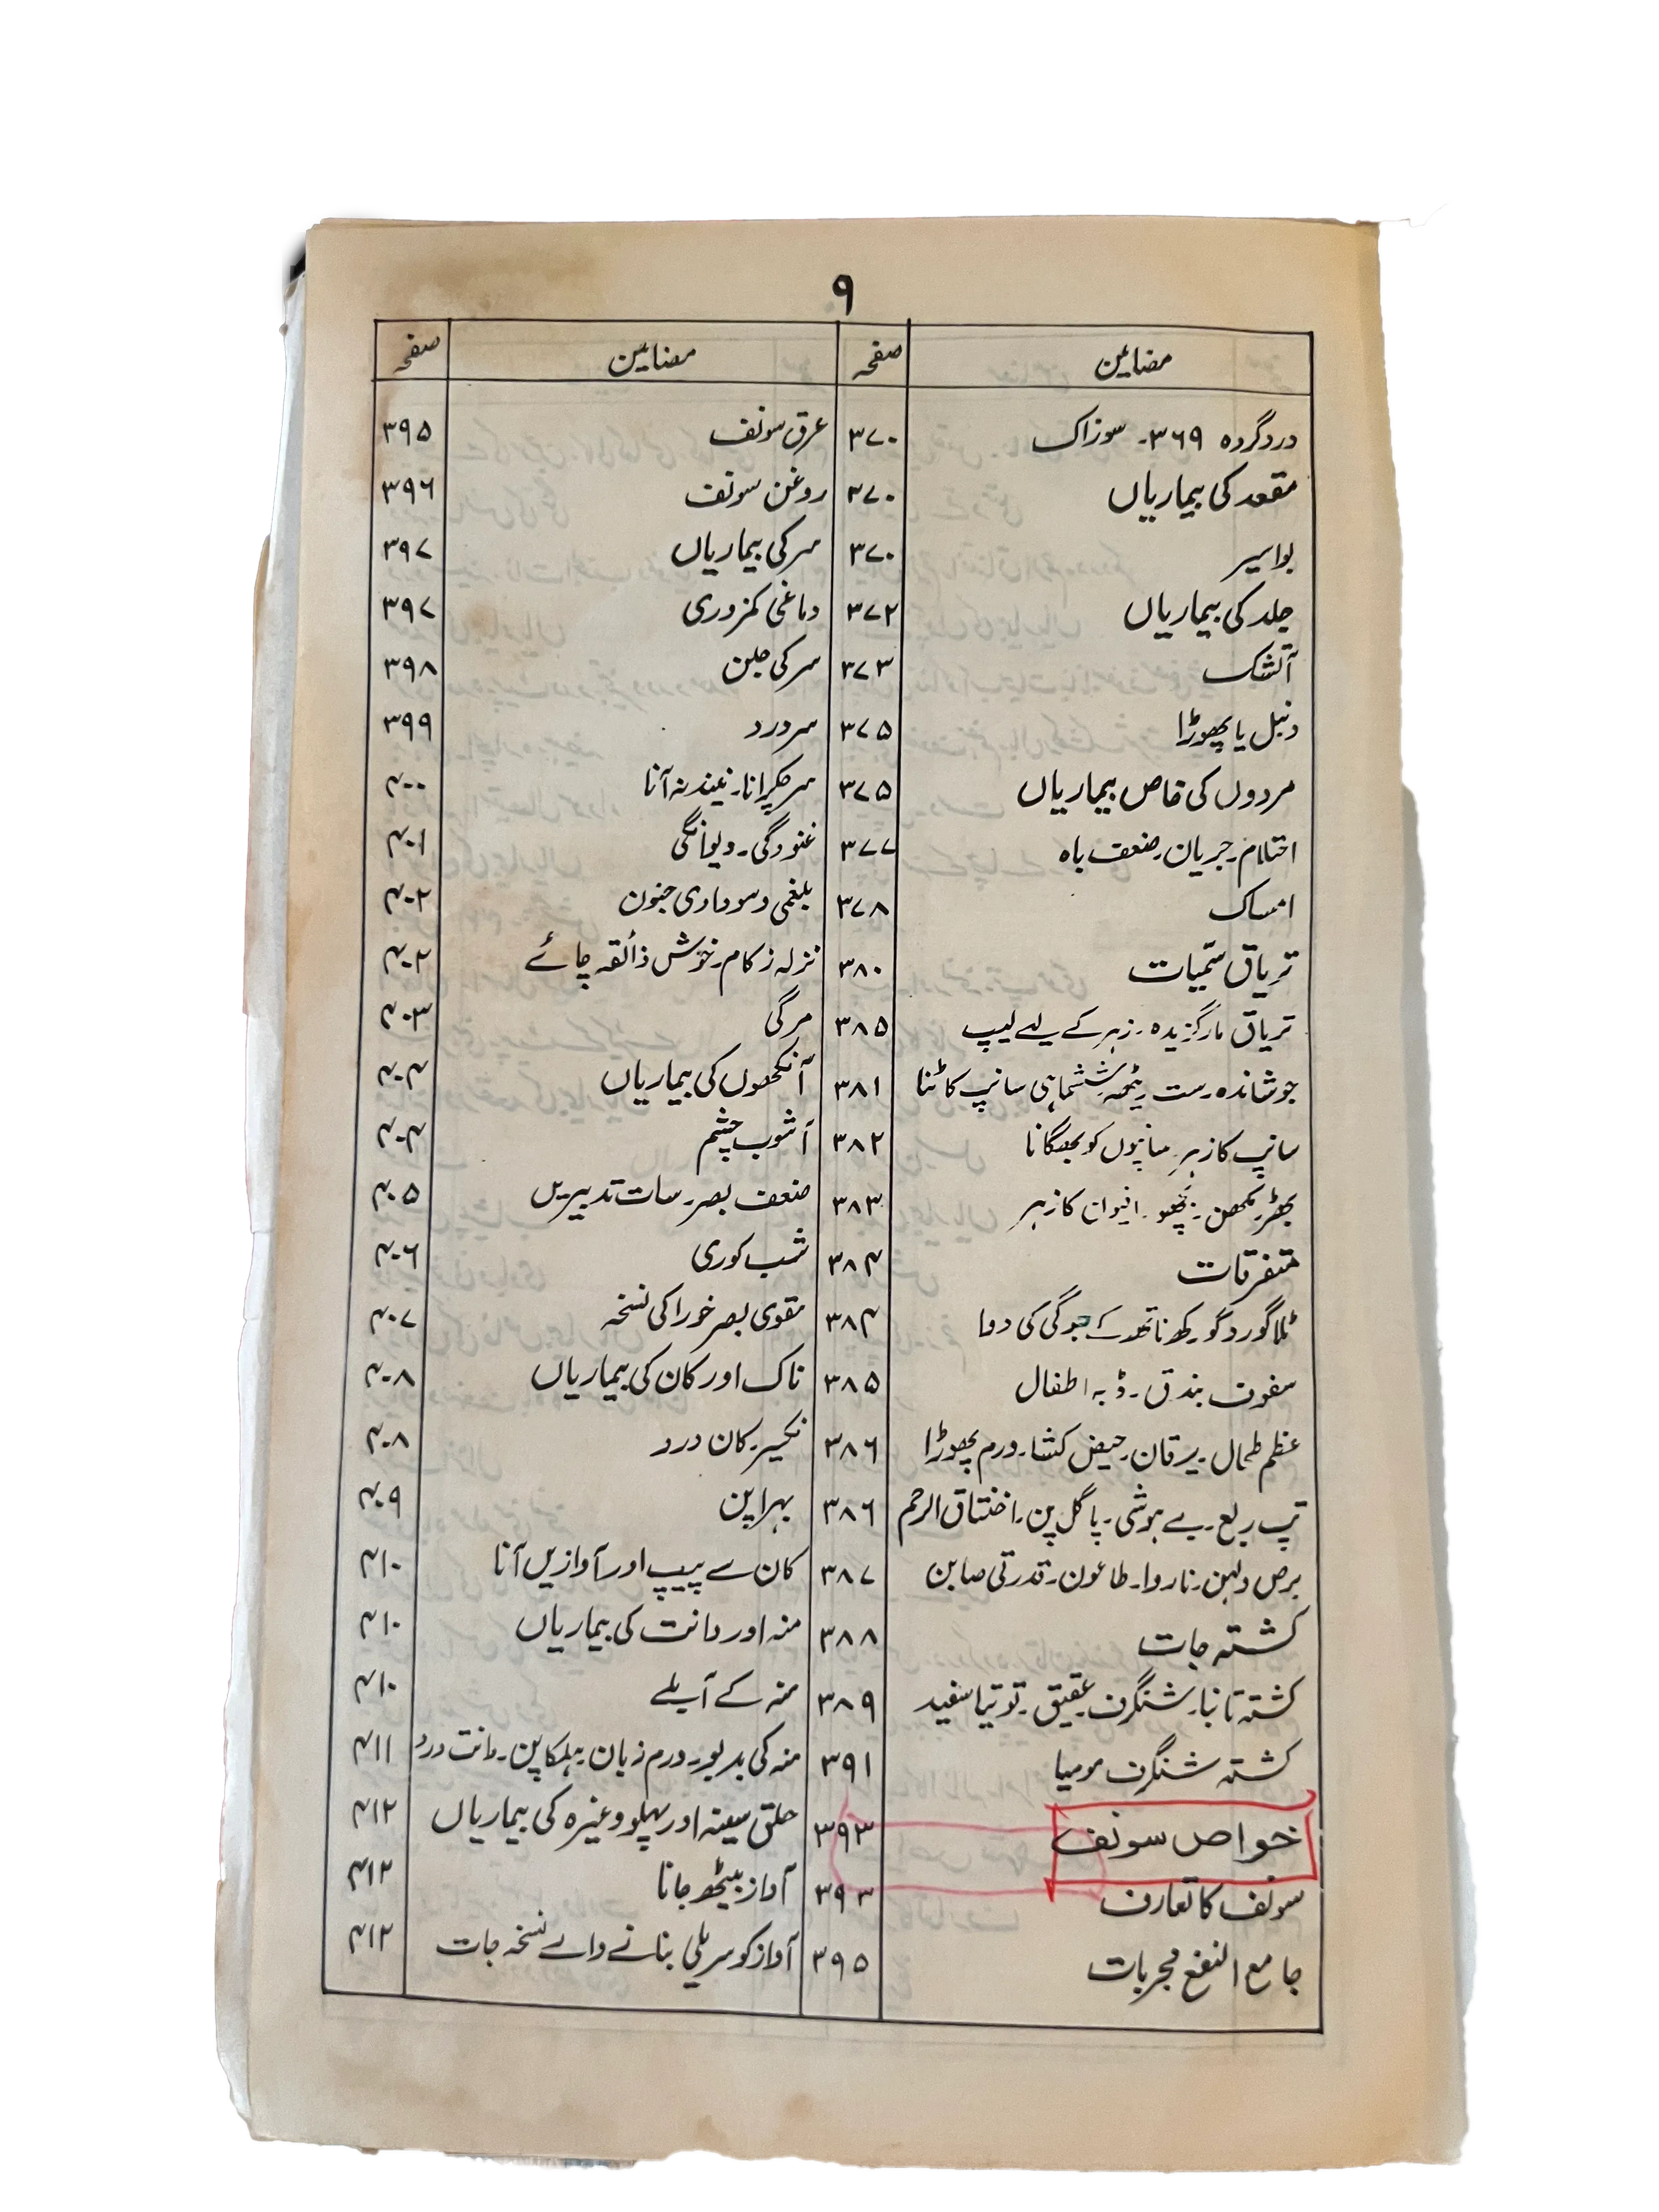 ۹
مضامین صفحہ
درد گردہ ۳۶۹۔ سوزاک ۳۷۰
مقعد کی بیماریاں ۳۷۰
بواسیر ۳۷۰
جلد کی بیماریاں ۳۷۲
آتشک ۳۷۳
دنبل یا پھوڑا ۳۷۵
مردوں کی خاص بیماریاں ۳۷۵
احتلام۔ جریان۔ ضعف باہ ۳۷۷
امساک ۳۷۸
تریاق سمّیات ۳۸۰
تریاق مارگزیدہ۔ زہر کے لیے لیپ ۳۸۵
جوشاندہ۔ ست۔ ریٹھہ۔ ششماہی سانپ کاٹنا ۳۸۱
سانپ کا زہر۔ سانپوں کو بھگانا ۳۸۲
بھڑ۔ مکھن۔ بچھو۔ افیون کا زہر ۳۸۳
متفرقات ۳۸۴
ٹلا گورو گورکھ ناتھ کے جوگی کی دوا ۳۸۴
سفوف بندق۔ ڈبہ اطفال ۳۸۵
عظم طحال۔ یرقان۔ حیض کشا۔ ورم پھوڑا ۳۸۶
تپ ربع۔ بے ہوشی۔ پاگل پن۔ اختناق الرحم ۳۸۶
برص ولہن۔ ناروا۔ طاعون۔ قدرتی صابن ۳۸۷
کشتہ جات ۳۸۸
کشتہ تانبا۔ شنگرف۔ عقیق۔ توتیا سفید ۳۸۹
کشتہ شنگرف مومیا ۳۹۱
خواص سونف ۳۹۳
سونف کا تعارف ۳۹۳
جامع النفع مجربات ۳۹۵
مضامین صفحہ
عرق سونف ۳۹۵
روغن سونف ۳۹۶
سر کی بیماریاں ۳۹۷
دماغی کمزوری ۳۹۷
سر کی جلن ۳۹۸
سر درد ۳۹۹
سر چکرانا۔ نیند نہ آنا ۴۰۰
غنودگی۔ دیوانگی ۴۰۱
بلغمی و سوداوی جنون ۴۰۲
نزلہ زکام۔ خوش ذائقہ چائے ۴۰۲
مرگی ۴۰۳
آنکھوں کی بیماریاں ۴۰۴
آشوب چشم ۴۰۴
ضعف بصر۔ سات تدبیریں ۴۰۵
شب کوری ۴۰۶
مقوی بصر خوراکی نسخہ ۴۰۷
ناک اور کان کی بیماریاں ۴۰۸
نکسیر۔ کان درد ۴۰۸
بہراپن ۴۰۹
کان سے پیپ اور آوازیں آنا ۴۱۰
منہ اور دانت کی بیماریاں ۴۱۰
منہ کے آبلے ۴۱۰
منہ کی بدبو۔ ورم زبان۔ ہلکاپن۔ دانت درد ۴۱۱
حلق سینہ اور پہلو وغیرہ کی بیماریاں ۴۱۲
آواز بیٹھ جانا ۴۱۲
آواز کو سریلی بنانے والے نسخہ جات ۴۱۲